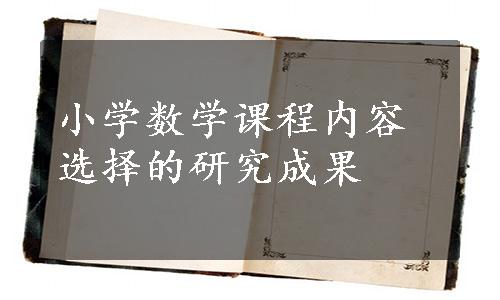 小学数学课程内容
选择的研究成果